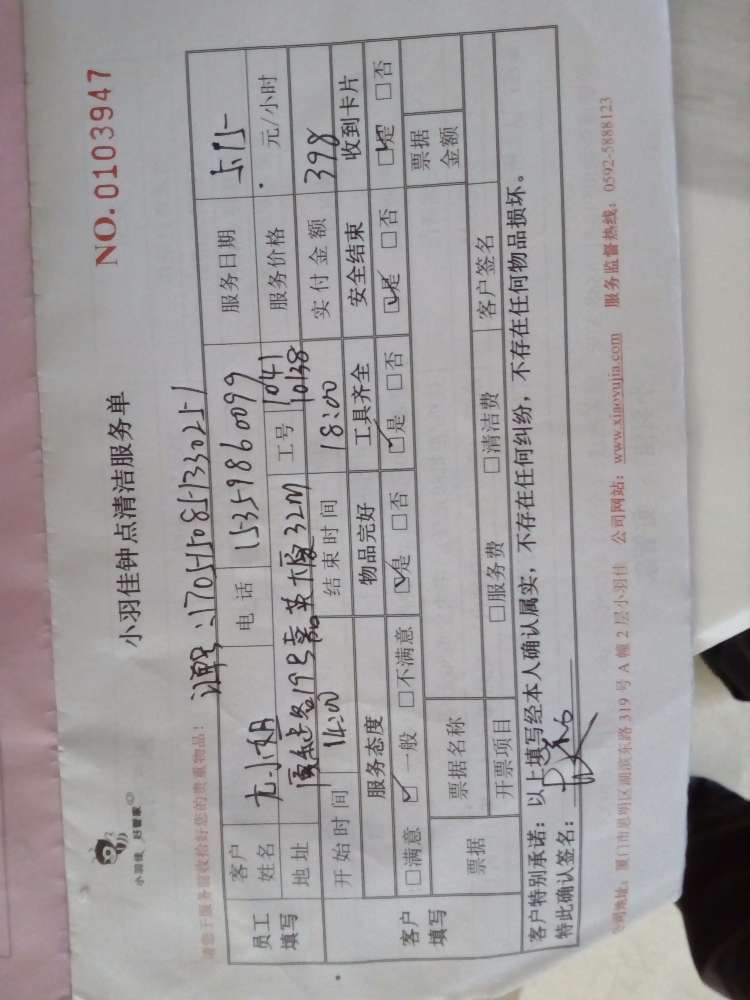 小羽佳，好管家
NO. 0103947
小羽佳钟点清洁服务单
订单号：170515085133025-1
员工填写
客户姓名 尤小姐 电话 15359860099 服务日期 5.15
地址 19号 工号 1041 10138 服务价格 元/小时
开始时间 14:00 结束时间 18:00 实付金额 398
客户填写
服务态度 物品完好 工具齐全 安全结束 收到卡片
□满意 ☑一般 □不满意 ☑是 □否 ☑是 □否 ☑是 □否 ☑是 □否
票据 票据名称 票据金额
开票项目 □服务费 □清洁费 客户签名
客户特别承诺：以上填写经本人确认属实，不存在任何纠纷，不存在任何物品损坏。
特此确认签名：
公司地址：厦门市思明区湖滨东路 319 号 A 幢 2 层小羽佳 公司网站：www.xiaoyujia.com 服务监督热线：0592-5888123